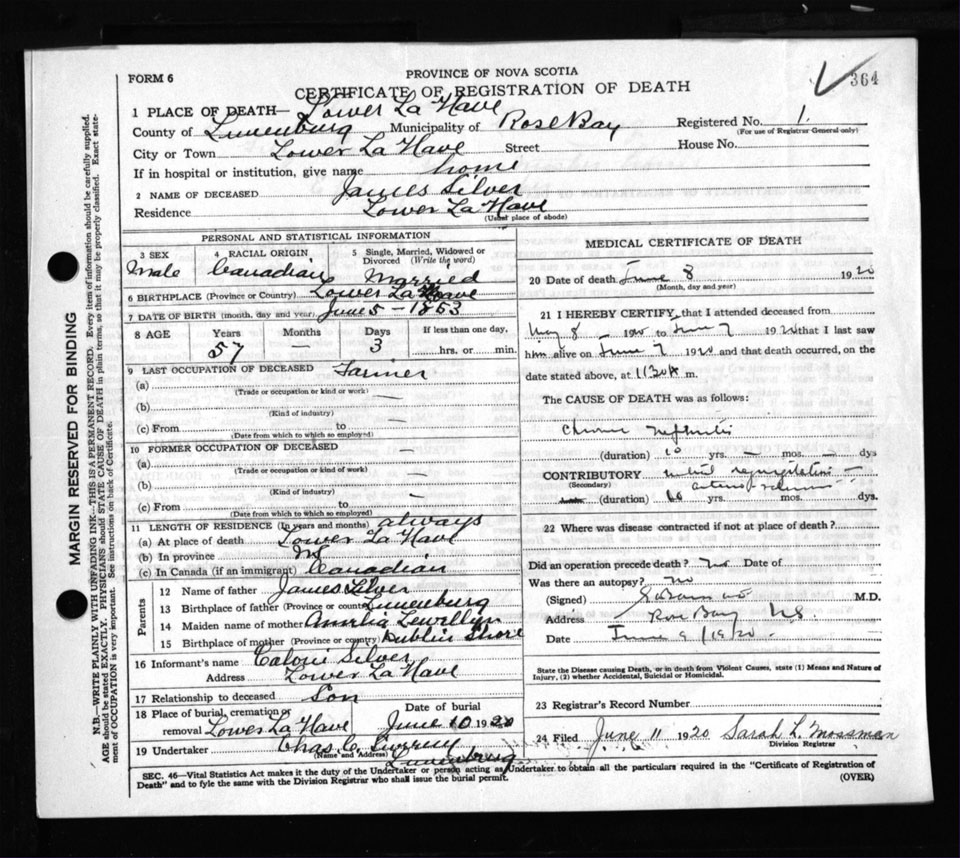 PROVINCE OF NOVA SCOTIA
FORM 6
CERTIFICATE OF REGISTRATION OF DEATH
364
1 PLACE OF DEATH— Lower La Have
County of Lunenburg Municipality of Rose Bay Registered No. 1.
(For use of Registrar General only)
City or Town Lower La Have Street House No.
If in hospital or institution, give name home
2 NAME OF DECEASED James Silver
Residence Lower La Have
(Usual place of abode)
PERSONAL AND STATISTICAL INFORMATION
3 SEX Male
4 RACIAL ORIGIN Canadian
5 Single, Married, Widowed or Divorced (Write the word) Married
6 BIRTHPLACE (Province or Country) Lower La Have
7 DATE OF BIRTH (month, day and year) June 5 - 1863
8 AGE Years Months Days If less than one day,
57 — 3 hrs. or min.
9 LAST OCCUPATION OF DECEASED Farmer
(a) —
(Trade or occupation or kind or work)
(b) —
(Kind of industry)
(c) From —
(Date from which to which so employed)
10 FORMER OCCUPATION OF DECEASED —
(a) —
(Trade or occupation or kind of work)
(b) —
(Kind of industry)
(c) From —
(Date from which to which so employed)
11 LENGTH OF RESIDENCE (In years and months) always
(a) At place of death Lower La Have
(b) In province NS
(c) In Canada (if an immigrant) Canadian
Parents
12 Name of father James Silver
13 Birthplace of father (Province or country) Lunenburg
14 Maiden name of mother Amelia Lewellyn
15 Birthplace of mother (Province or country) Dublin Shore
16 Informant's name Silver
Address Lower La Have
17 Relationship to deceased Son
18 Place of burial, cremation or removal Lower La Have
Date of burial June 10 1920
19 Undertaker Chas C.
(Name and Address) Lunenburg
MEDICAL CERTIFICATE OF DEATH
20 Date of death June 8 1920
(Month, day and year)
21 I HEREBY CERTIFY, that I attended deceased from
May 8 1920 to June 7 1920 that I last saw
him alive on June 7 1920 and that death occurred, on the
date stated above, at 11 30 A m.
The CAUSE OF DEATH was as follows:
Chronic Nephritis
(duration) 10 yrs. — mos. — dys
CONTRIBUTORY mitral regurgitation —
(Secondary) arterio sclerosis
(duration) 10 yrs. mos. dys.
22 Where was disease contracted if not at place of death?
Did an operation precede death? no Date of
Was there an autopsy? no
(Signed) M.D.
Address Rose Bay NS
Date June 9/1920.
State the Disease causing Death, or in death from Violent Causes, state (1) Means and Nature of
Injury, (2) whether Accidental, Suicidal or Homicidal.
23 Registrar's Record Number
24 Filed June 11 1920 Sarah L. Mossman
Division Registrar
SEC. 46—Vital Statistics Act makes it the duty of the Undertaker or person acting as Undertaker to obtain all the particulars required in the "Certificate of Registration of
Death" and to fyle the same with the Division Registrar who shall issue the burial permit. (OVER)
MARGIN RESERVED FOR BINDING
N.B.—WRITE PLAINLY WITH UNFADING INK—THIS IS A PERMANENT RECORD. Every item of information should be carefully supplied.
AGE should be stated EXACTLY. PHYSICIANS should STATE CAUSE OF DEATH in plain terms, so that it may be properly classified. Exact state-
ment of OCCUPATION is very important. See instructions on back of Certificate.